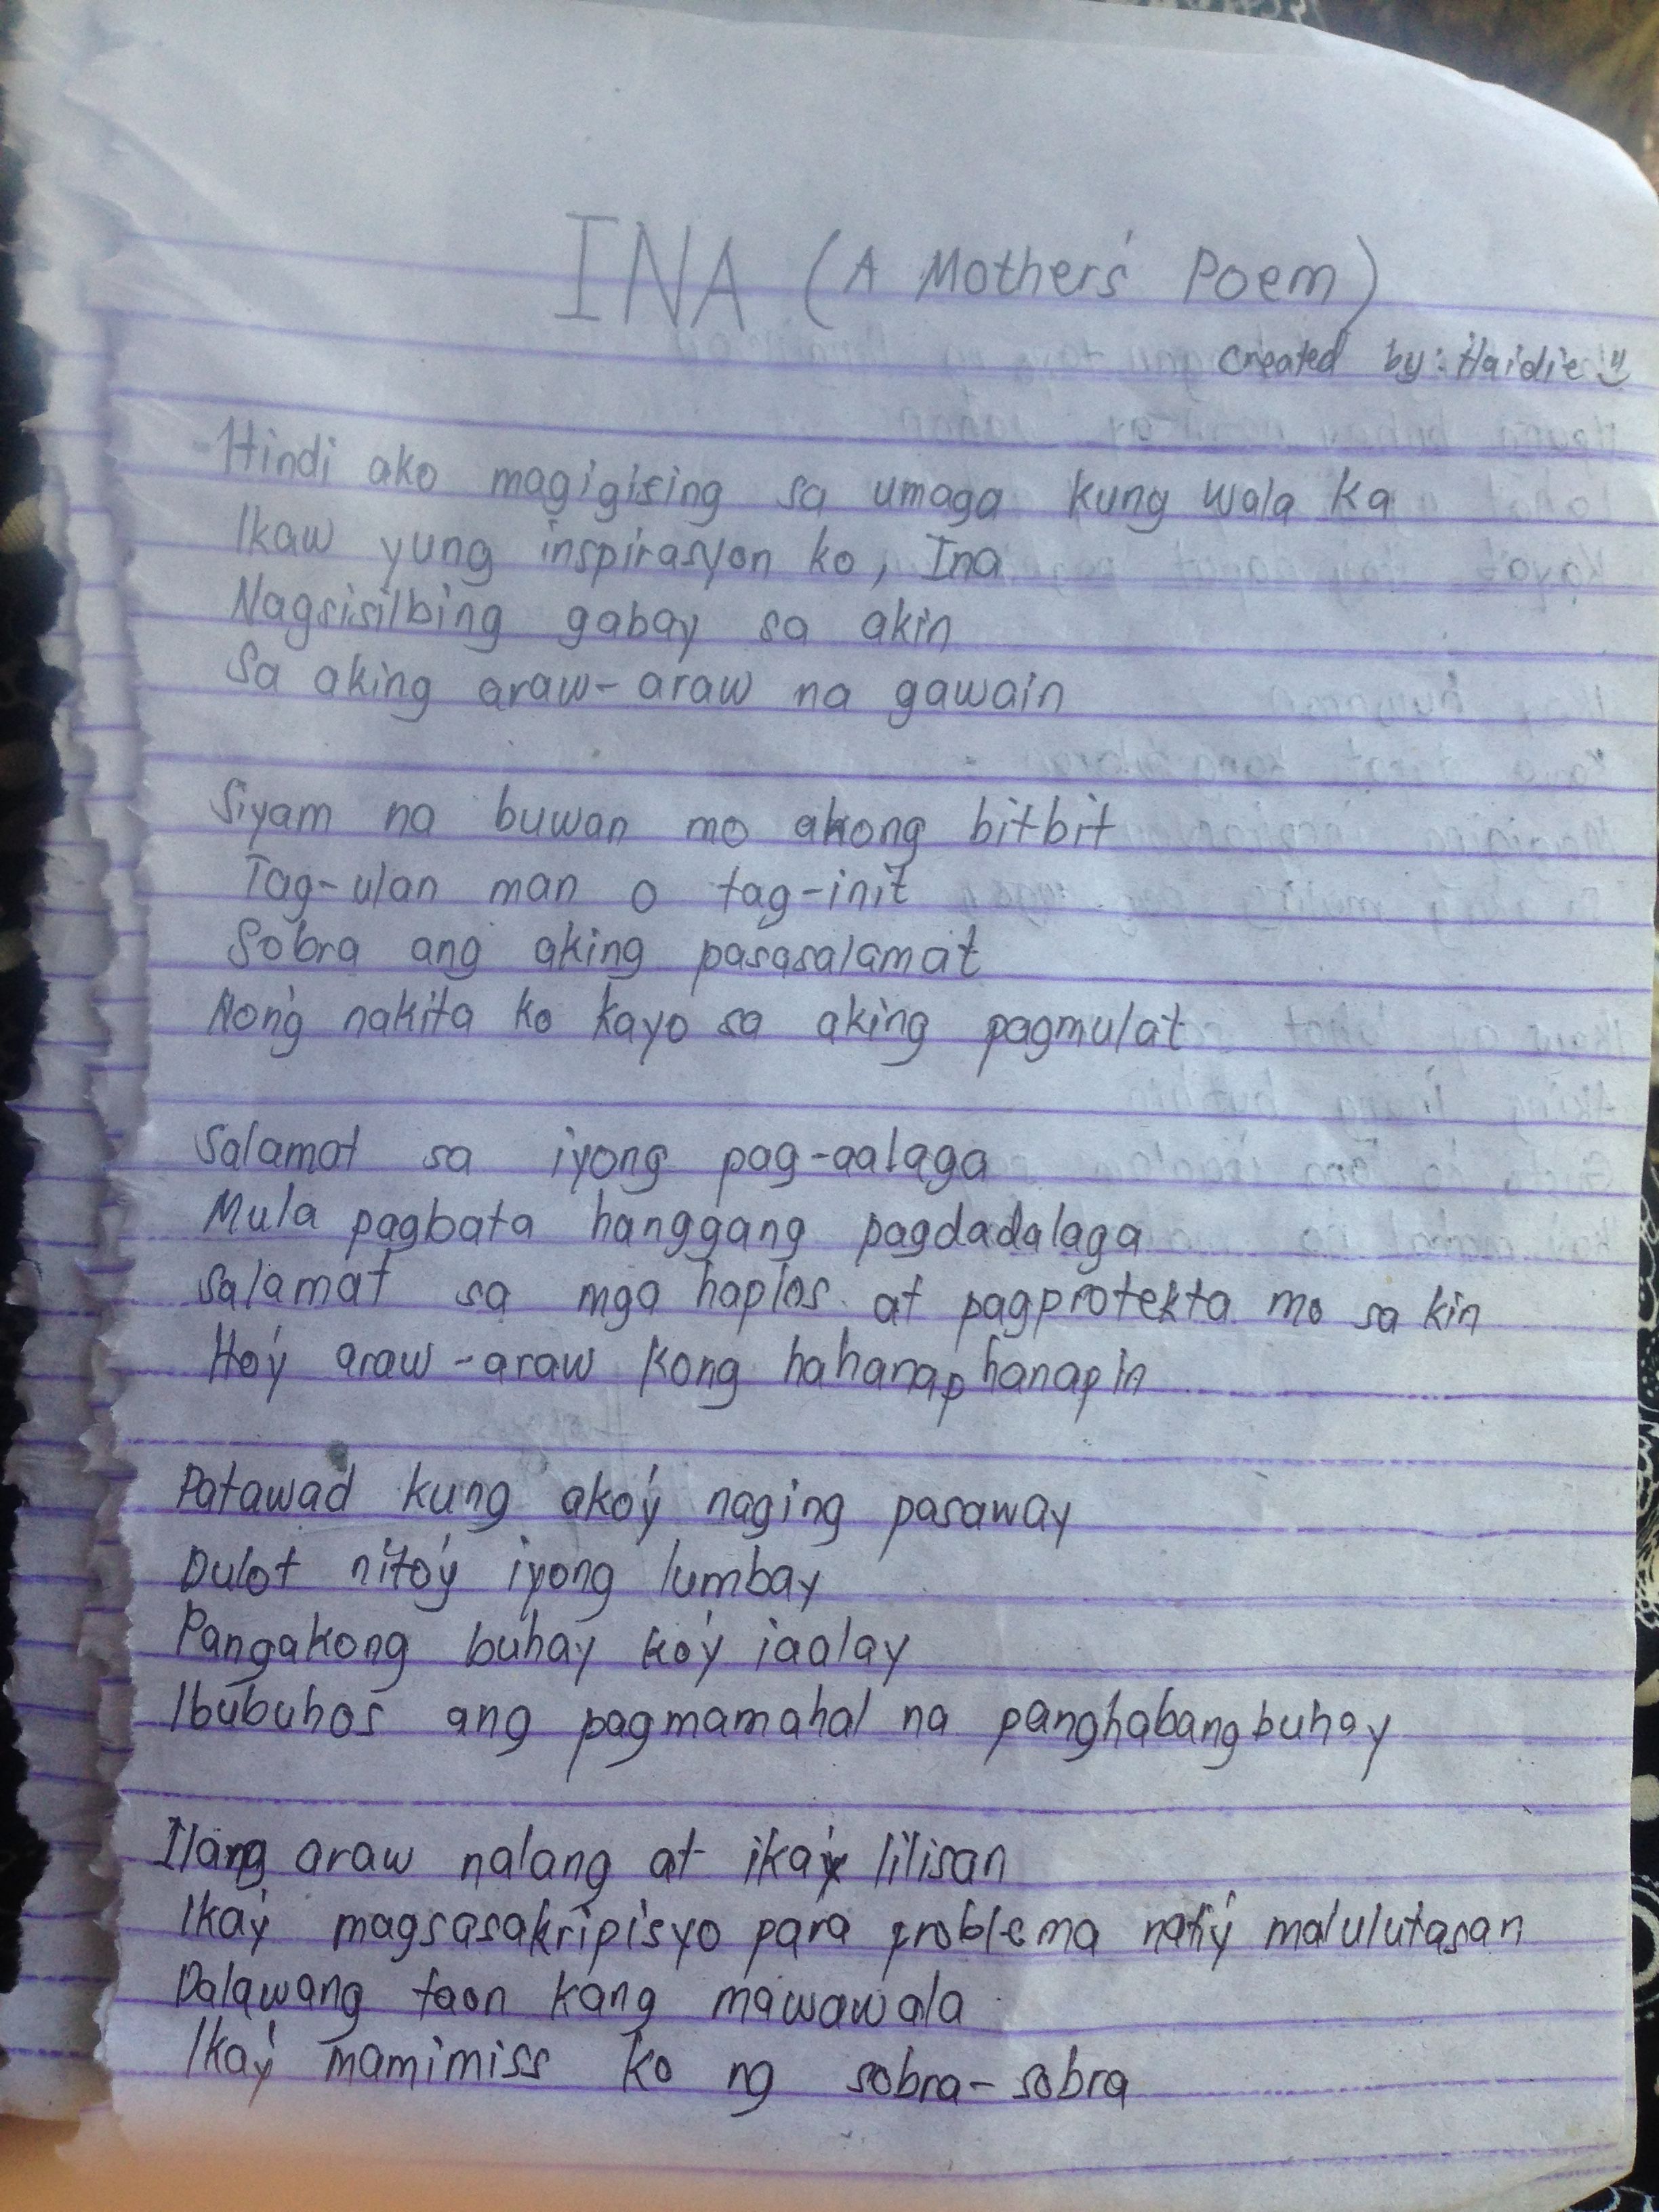 INA (A Mothers' Poem)
Created by: Haidie
Hindi ako magigising sa umaga kung wala ka
Ikaw yung inspirasyon ko, Ina
Nagsisilbing gabay sa akin
Sa aking araw-araw na gawain
Siyam na buwan mo akong bitbit
Tag-ulan man o tag-init
Sobra ang aking pasasalamat
Nong nakita ko kayo sa aking pagmulat
Salamat sa iyong pag-aalaga
Mula pagbata hanggang pagdadalaga
Salamat sa mga haplos at pagprotekta mo sa kin
Ito'y araw-araw kong hahanaphanapin
Patawad kung ako'y naging pasaway
Dulot nito'y iyong lumbay
Pangakong buhay ko'y iaalay
Ibubuhos ang pagmamahal na panghabangbuhay
Ilang araw nalang at ika'y lilisan
Ika'y magsasakripisyo para problema nati'y malulutasan
Dalawang taon kang mawawala
Ika'y mamimiss ko ng sobra-sobra